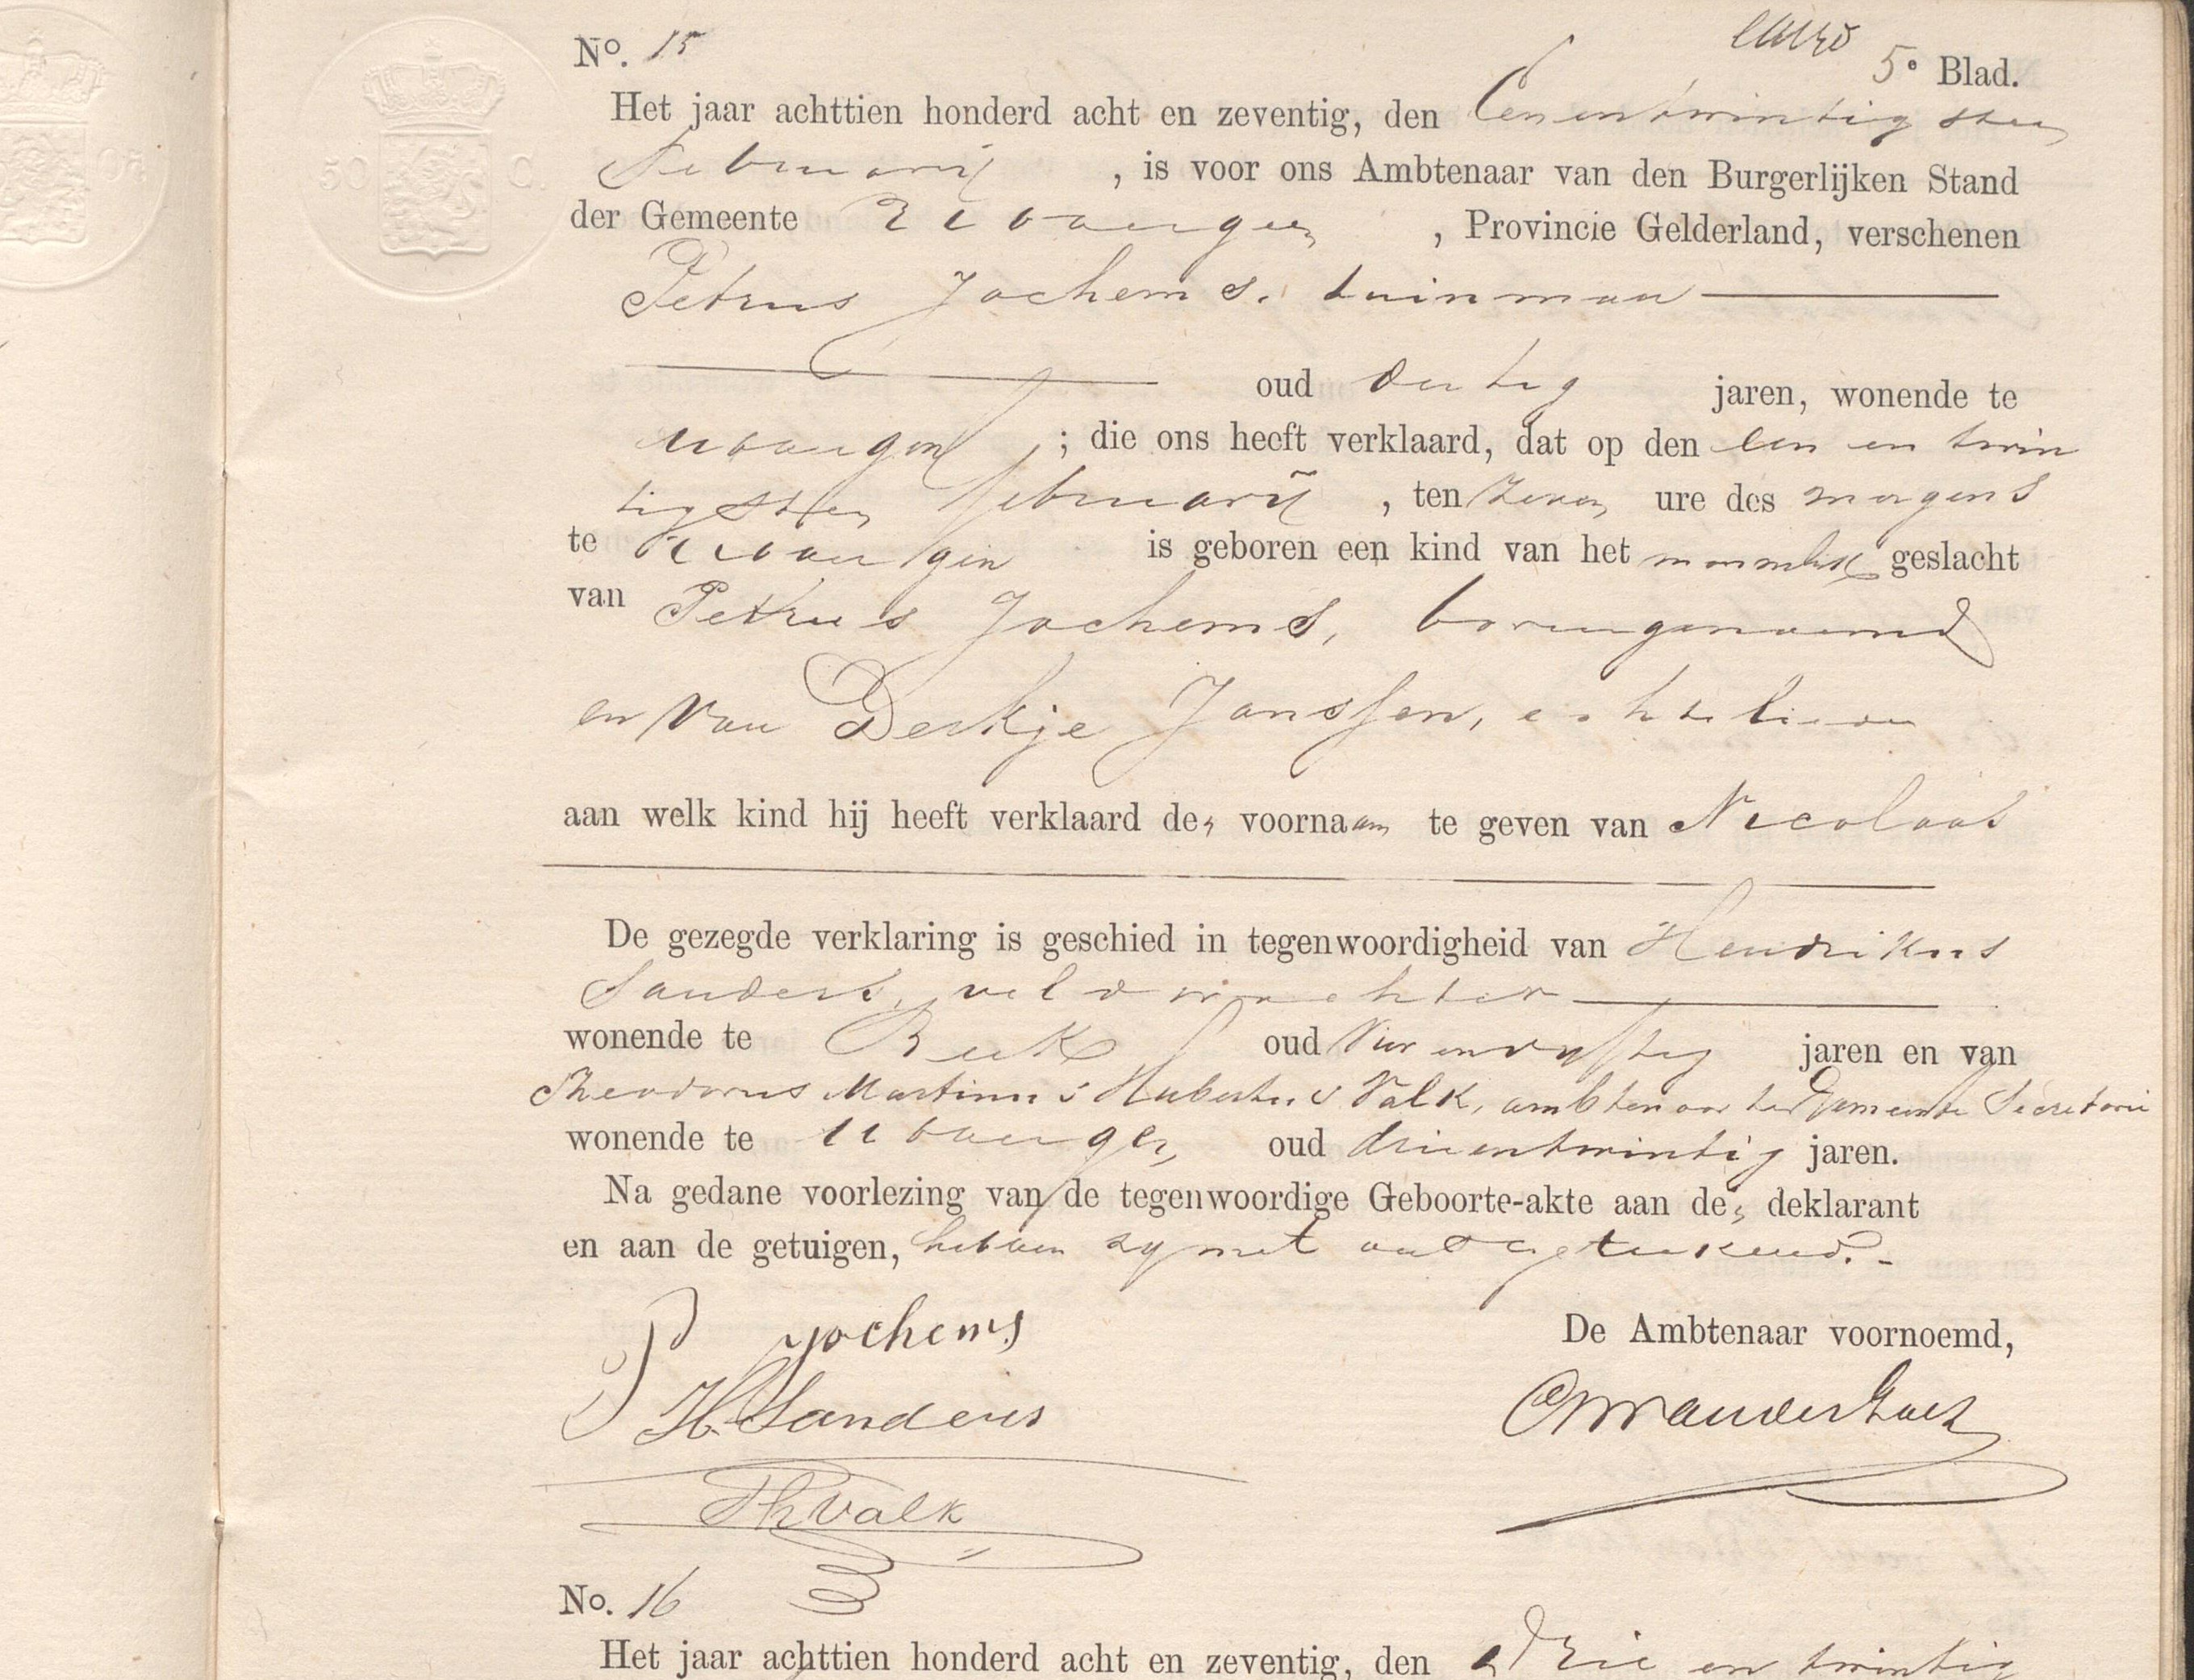 50 C.
No. 15
5e Blad.
Het jaar achttien honderd acht en zeventig, den Eenentwintigsten
Februarij, is voor ons Ambtenaar van den Burgerlijken Stand
der Gemeente Ubbergen, Provincie Gelderland, verschenen
Petrus Jochems, tuinman
oud dertig jaren, wonende te
Ubbergen; die ons heeft verklaard, dat op den een en twin
tigsten februarij, ten zeven ure des morgens
te Ubbergen is geboren een kind van het mannelijk geslacht
van Petrus Jochems, bovengenoemd
en van Derkje Janssen, echtelieden
aan welk kind hij heeft verklaard den voornaam te geven van Nicolaas
De gezegde verklaring is geschied in tegenwoordigheid van Hendrikus
Sanders, veldwachter
wonende te Beek oud Vier en vyftig jaren en van
Theodorus Martinus Hubertus Valk, ambtenaar ter Gemeente Secretarie
wonende te Ubbergen, oud drieentwintig jaren.
Na gedane voorlezing van de tegenwoordige Geboorte-akte aan den deklarant
en aan de getuigen, hebben zy met ons geteekend.-
P Jochems
De Ambtenaar voornoemd,
H. Sanders
Th Valk
No. 16
Het jaar achttien honderd acht en zeventig, den Drie en twintig